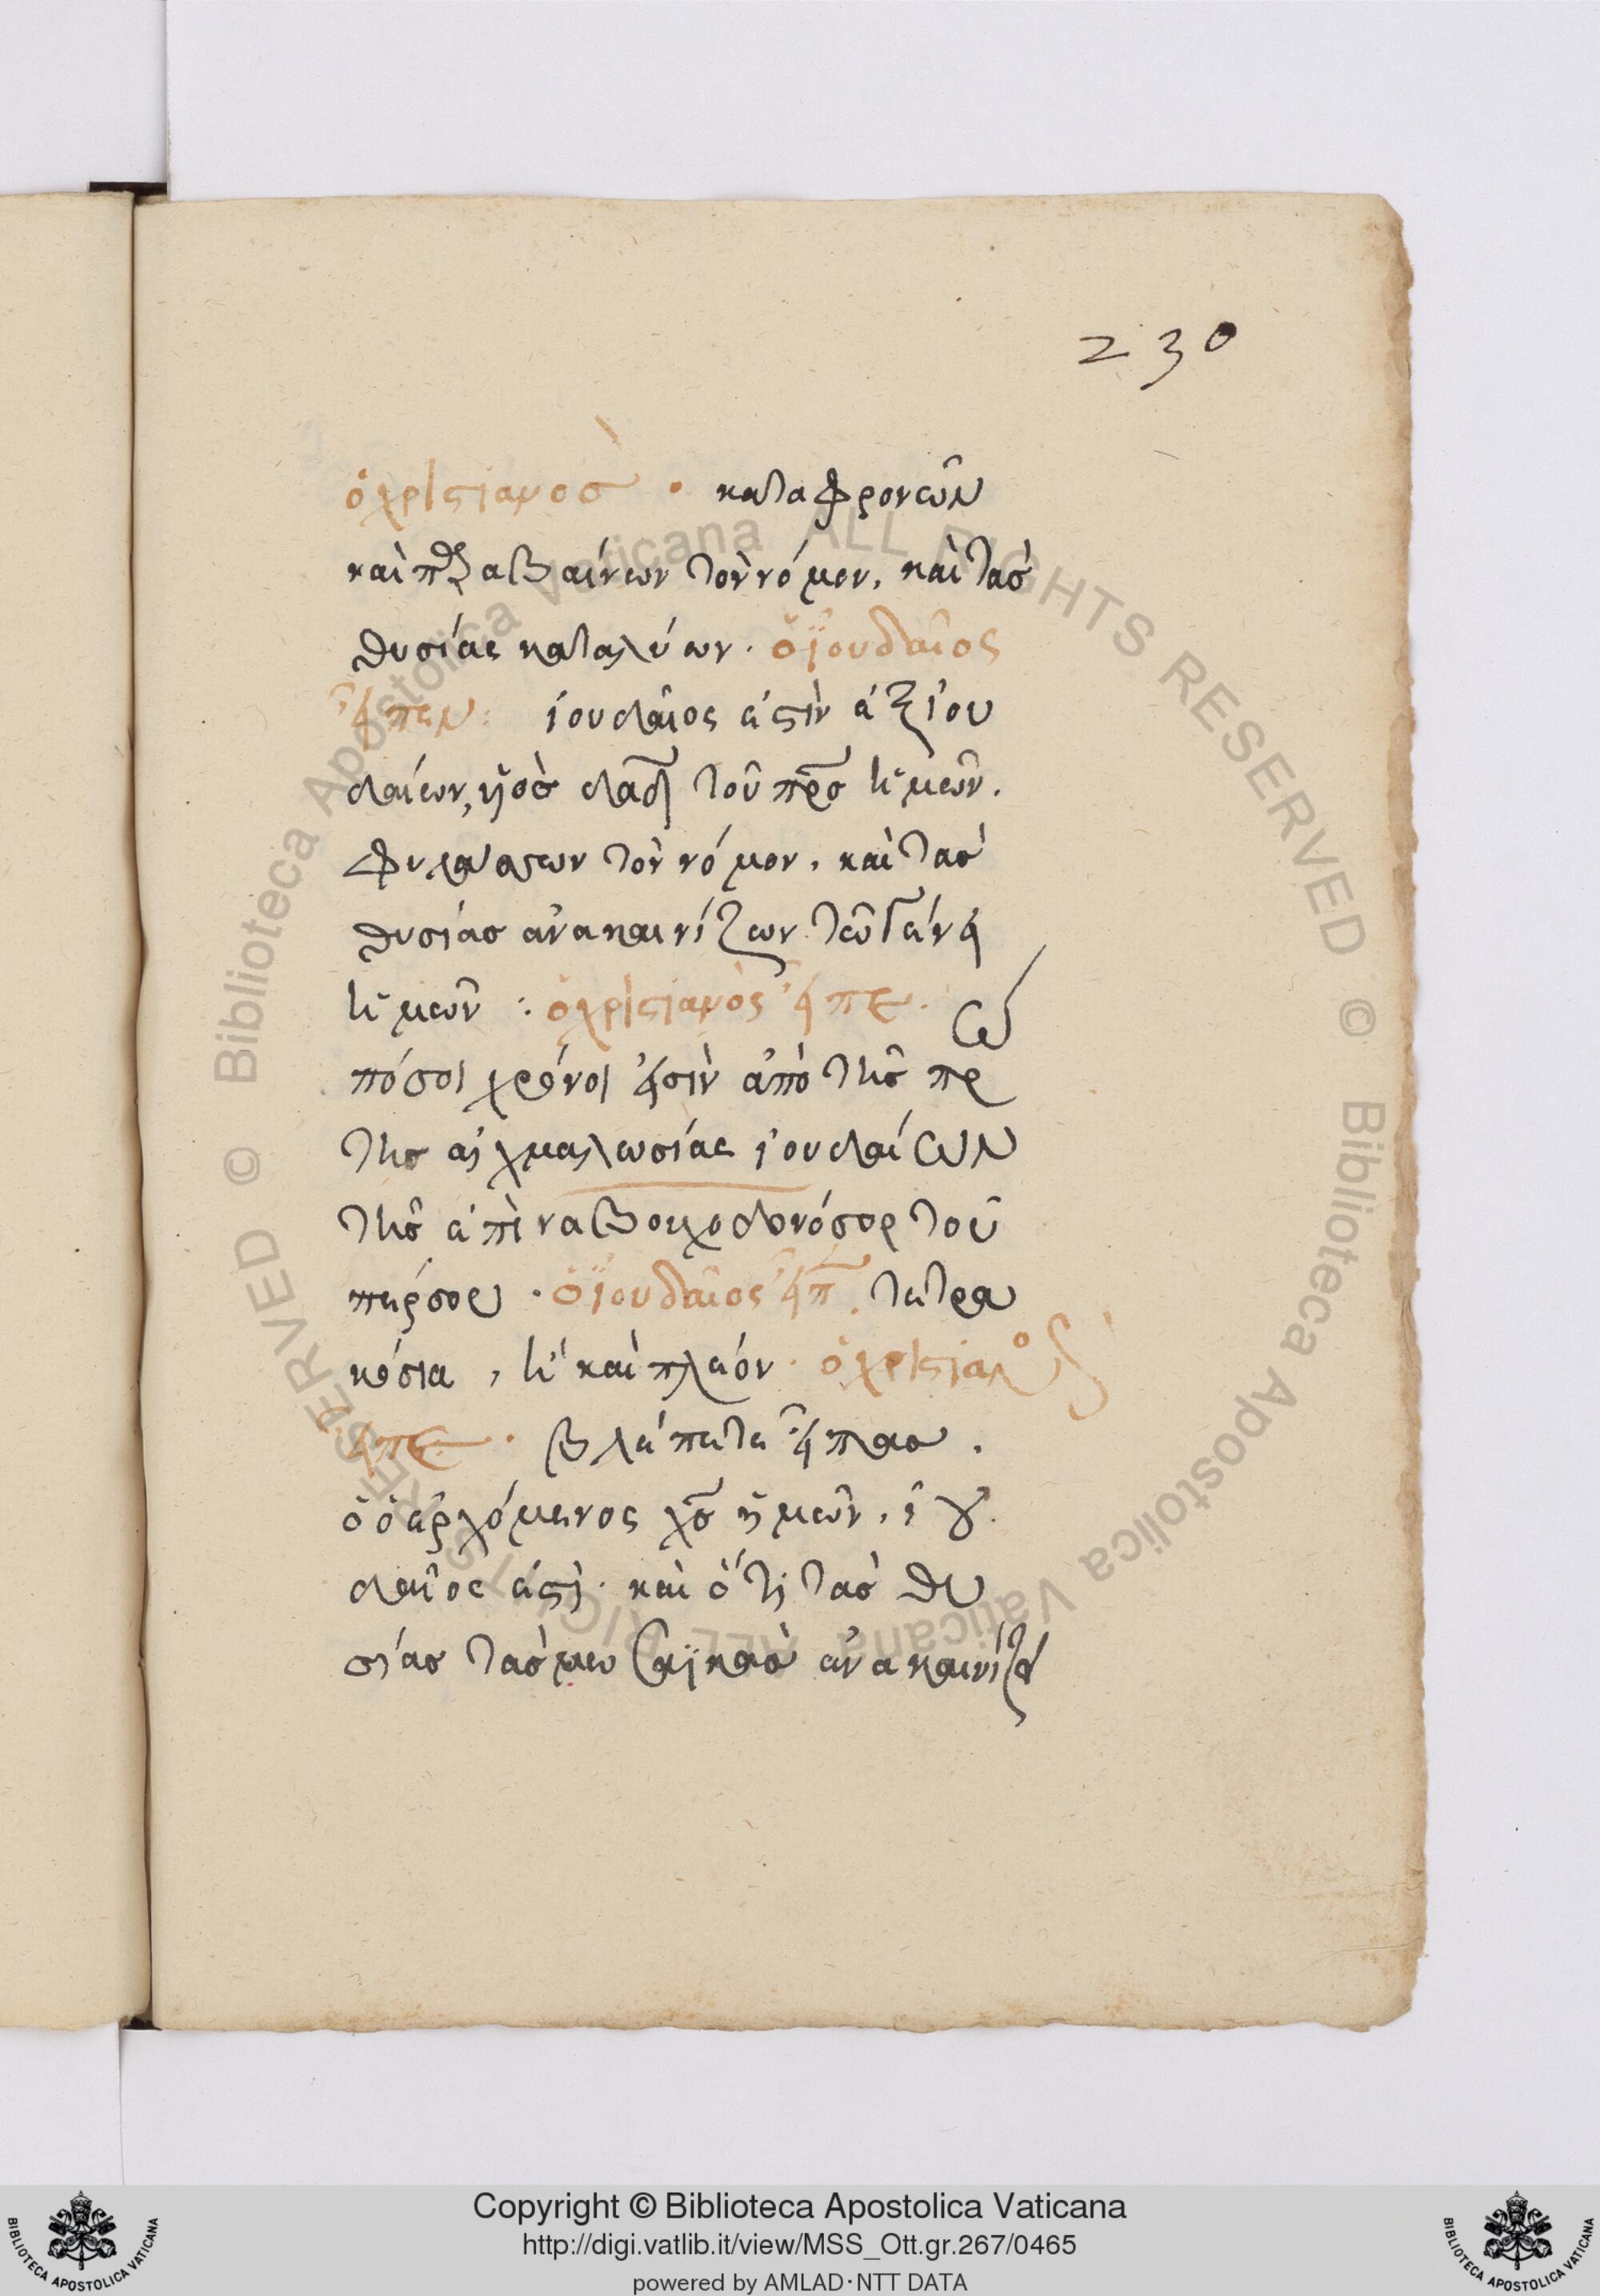 230
ὁ χριστιανὸσ · καταφρονῶν
καὶ παραβαίνων τὸν νόμον, καὶ τὰσ
θυσίας καταλύων · ὁ ἰουδαῖος
εἶπεν : ἰουδαῖος ἐστὶν ἐξ ἰου
δαίων, ἡσ δαδ τοῦ πρσ ἡμῶν.
φυλάσσων τὸν νόμον, καὶ τὰσ
θυσίασ ἀνακαινίζων τῶ γένει
ἡμῶν : ὁ χριστιανὸς εἶπε · ὦ
πόσοι χρόνοι εἰσὶν ἀπὸ τῆσ πρ
τησ αἰχμαλωσίας ἰουδαίων
τῆσ ἐπὶ ναβουχοδονόσορ τοῦ
πέρσου · ὁ ἰουδαῖος εἶπ. τετρα
κόσια, ἢ καὶ πλέον · ὁ χριστιανος
εἶπε · βλέπετε εἶπασ.
ὁ ὁ ἐρχόμενος χσ ἡμῶν, ἰου
δαῖος ἐστὶ · καὶ ὅτι τὰσ θυ
σίασ τὰσ μωσαϊκὰσ ἀνακαινίζει
Copyright © Biblioteca Apostolica Vaticana
http://digi.vatlib.it/view/MSS_Ott.gr.267/0465
powered by AMLAD·NTT DATA